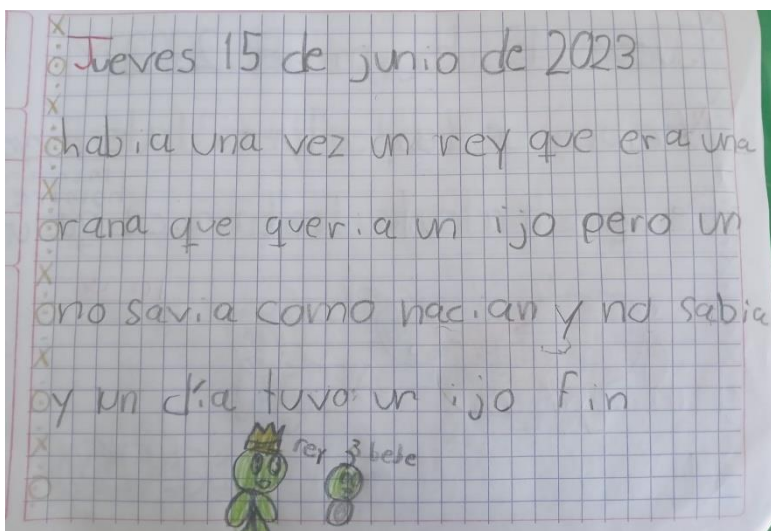 Jueves 15 de junio de 2023
habia una vez un rey que era una
rana que queria un ijo pero un
no savia como nacian y no sabia
y un día tuvo un ijo fin
rey bebe